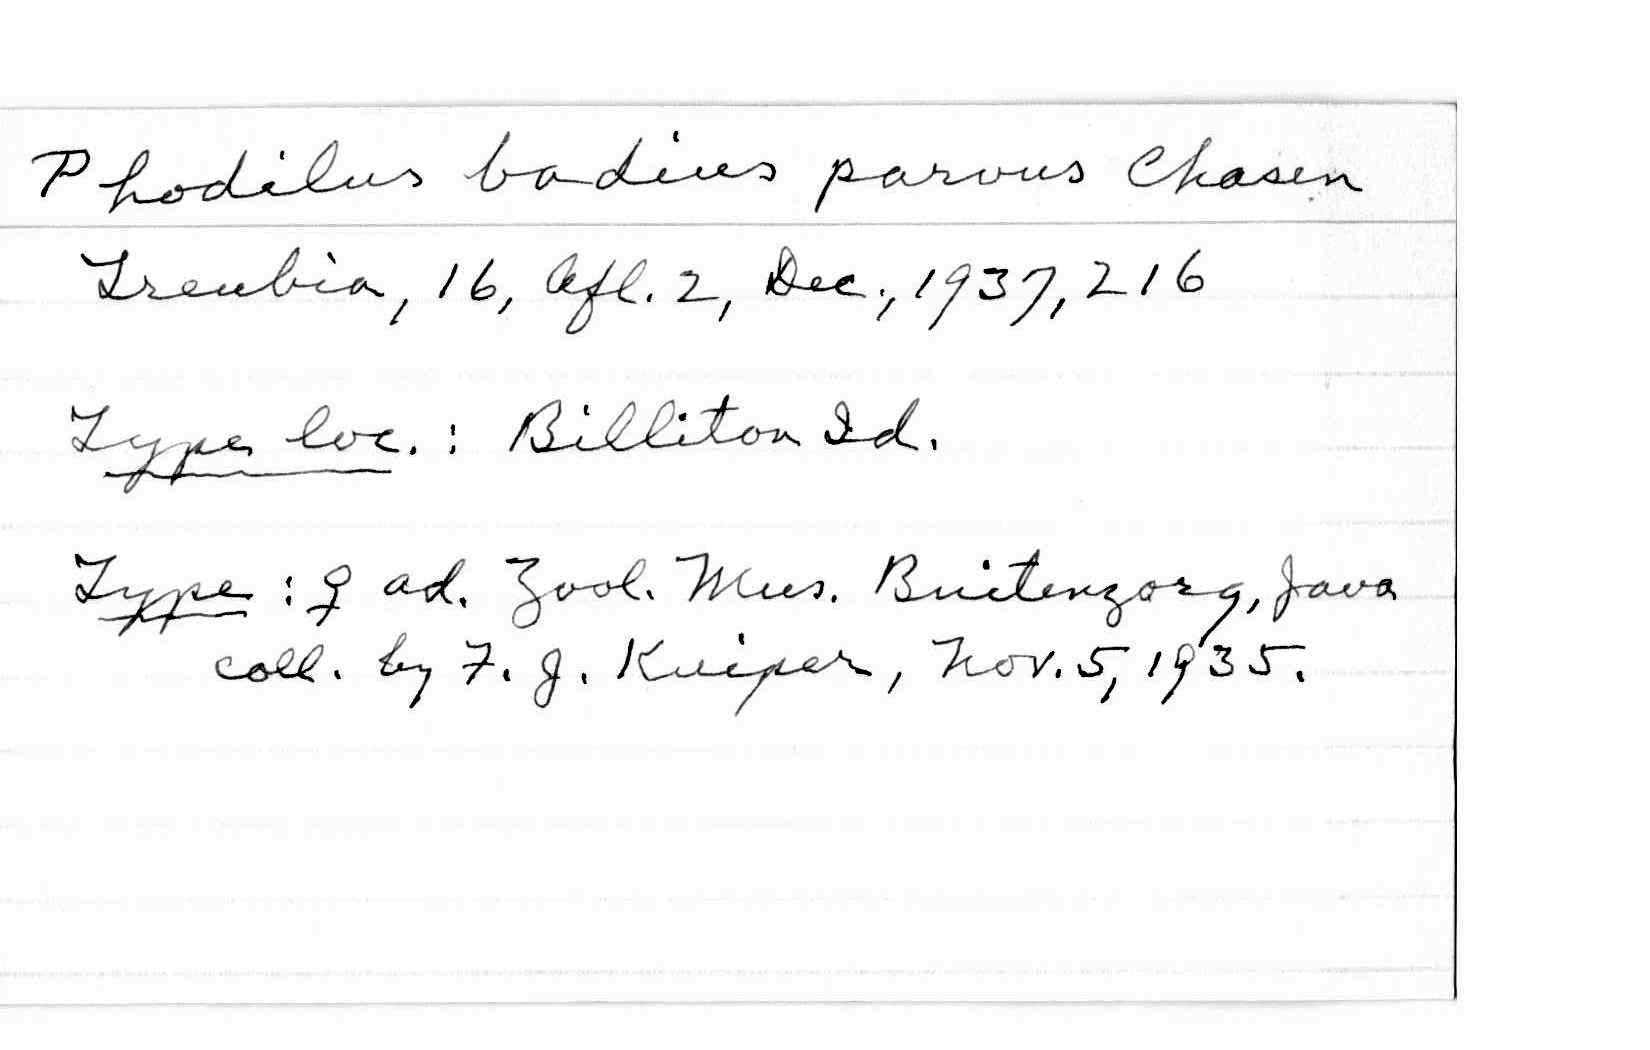 Phodilus badius parvus Chasen
Treubia, 16, Afl. 2, Dec., 1937, 216
Type loc. : Billiton Id.
Type : ♀ ad. Zool. Mus. Buitenzorg, Java
coll. by F. J. Kuiper, Nov. 5, 1935.